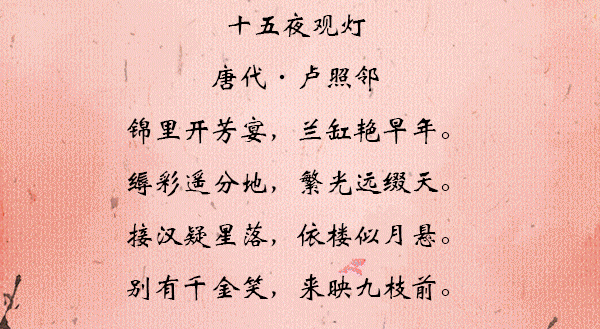 十五夜观灯
唐代·卢照邻
锦里开芳宴，兰缸艳早年。
缛彩遥分地，繁光远缀天。
接汉疑星落，依楼似月悬。
别有千金笑，来映九枝前。